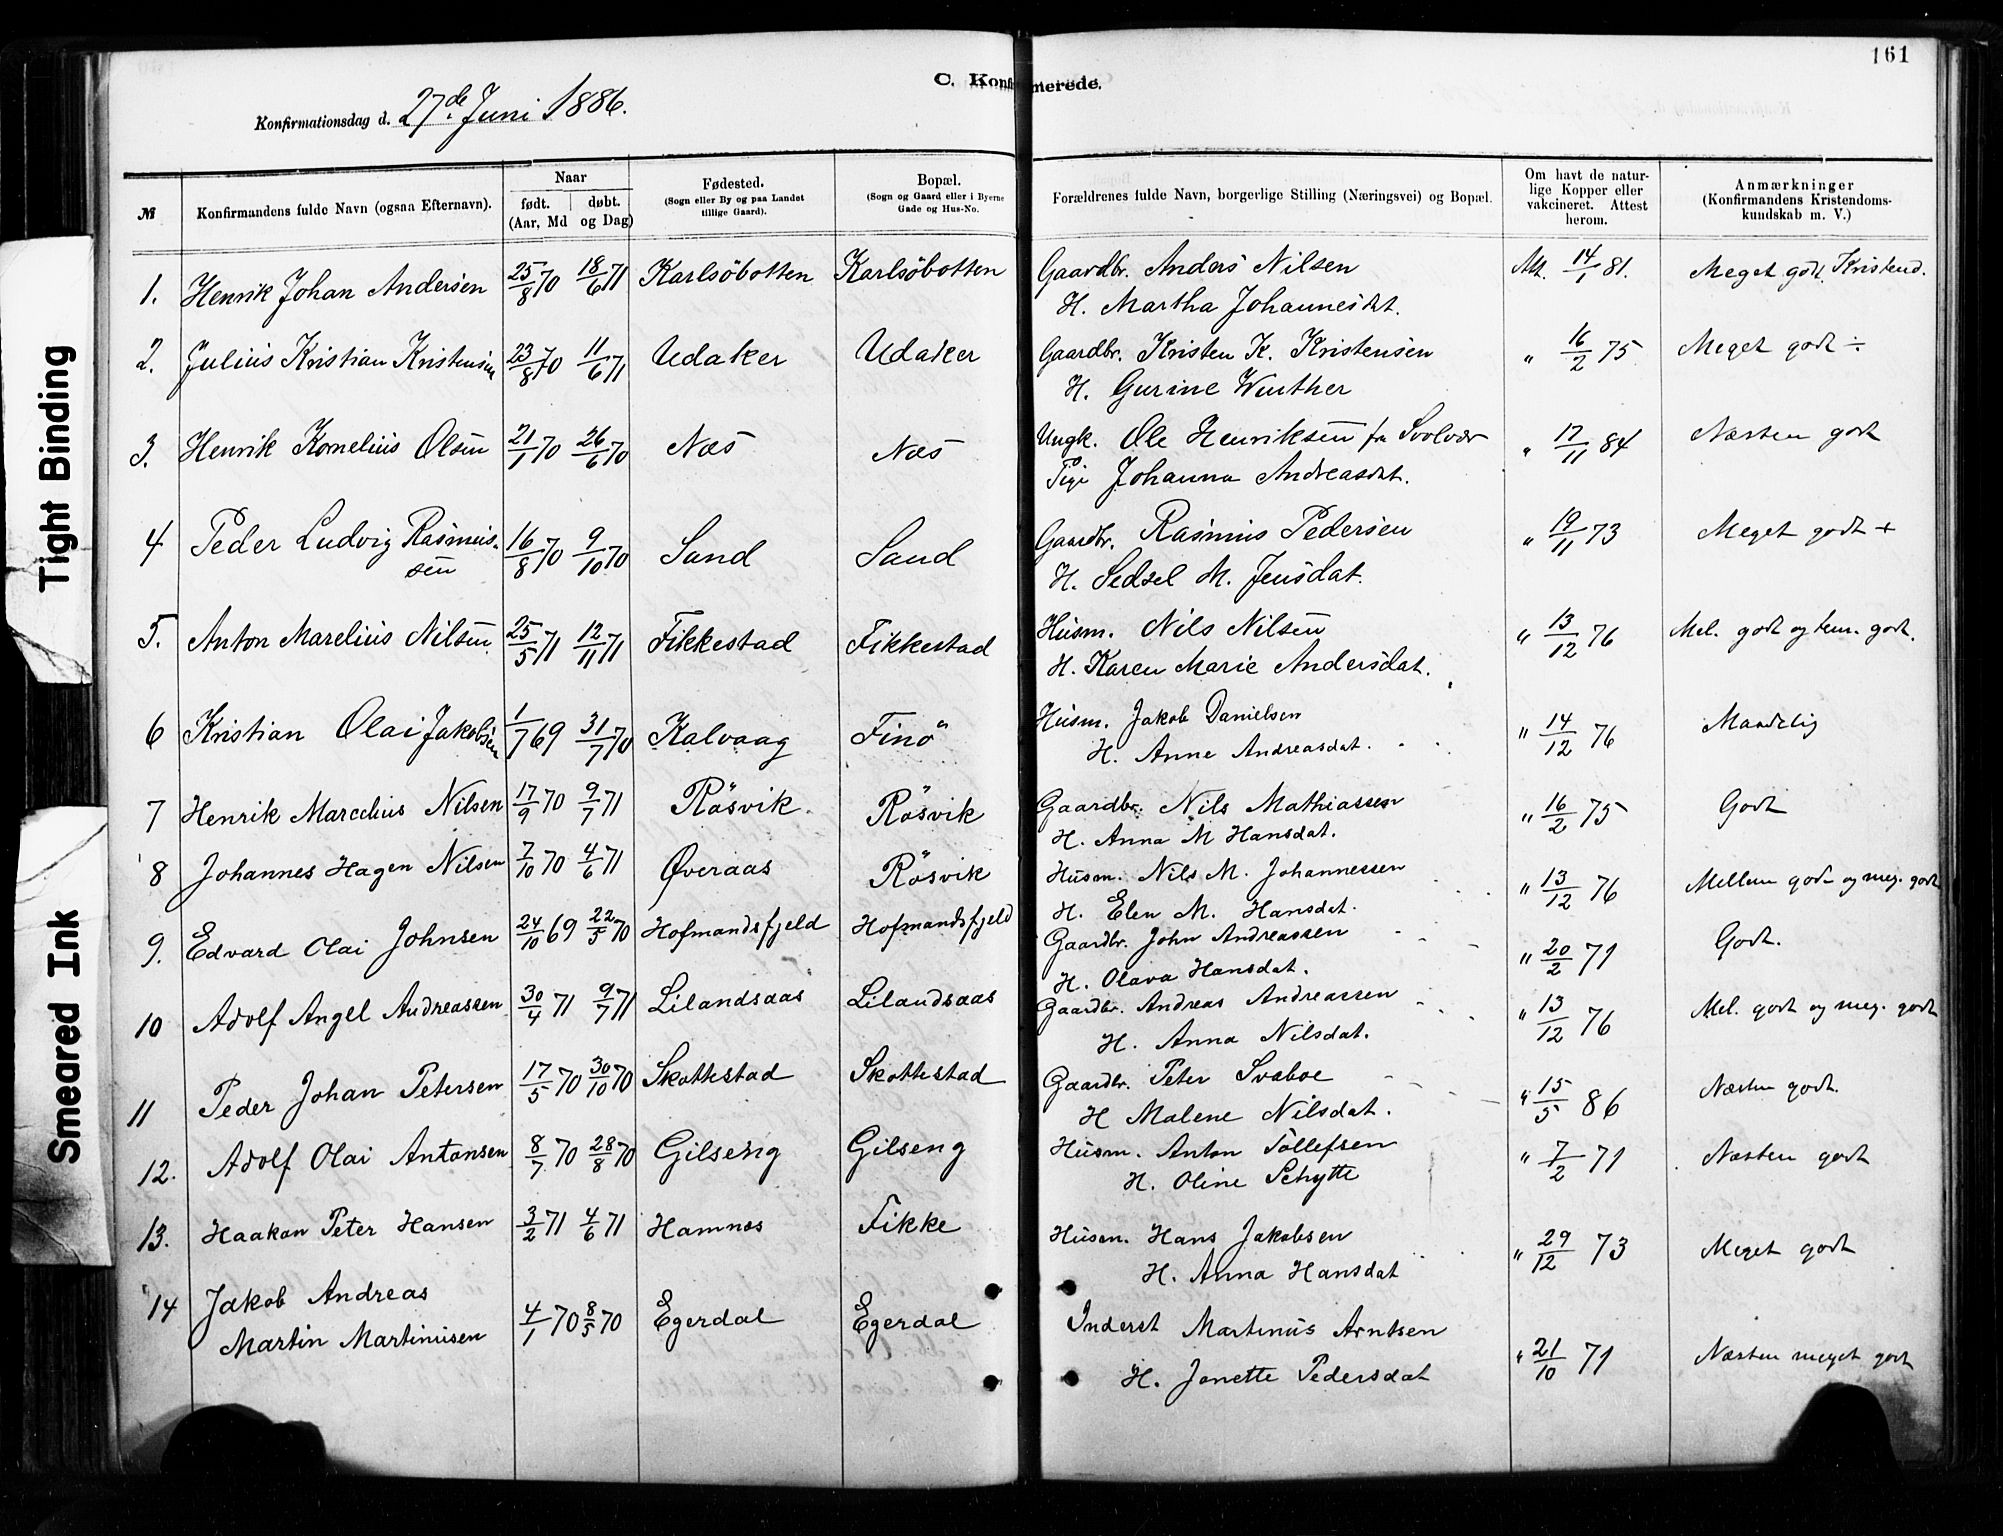 161
C. Konfirmerede.
Konfirmationsdag d. 27de Juni 1886.
№ | Konfirmandens fulde Navn (ogsaa Efternavn). | Naar født. døbt. (Aar, Md og Dag) | Fødested. (Sogn eller By og paa Landet tillige Gaard). | Bopæl. (Sogn og Gaard eller i Byerne Gade og Hus-No. | Forældrenes fulde Navn, borgerlige Stilling (Næringsvei) og Bopæl. | Om havt de naturlige Kopper eller vakcineret. Attest herom. | Anmærkninger (Konfirmandens Kristendomskundskab m. V.)
1. Henrik Johan Andersen 25/8 70 18/6 71 Karlsöbotten Karlsöbotten Gaardbr. Anders Nilsen Att. 14/1 81. Meget godt. Kristend.
H. Martha Johannesdat.
2. Julius Kristian Kristensen 23/8 70 11/6 71 Udaker Udaker Gaardbr. Kristen K. Kristensen " 16/2 75 Meget godt ÷
H. Gurine Winther
3. Henrik Kornelius Olsen 21/1 70 26/6 70 Næs Næs Ungk. Ole Henriksen fra Svolvær " 17/11 84 Næsten godt
Pige Johanna Andreasdat.
4 Peder Ludvig Rasmus- 16/8 70 9/10 70 Sand Sand Gaardbr. Rasmus Pedersen " 19/11 73 Meget godt +
sen H. Sedsel M. Jensdat.
5. Anton Marelius Nilsen 25/5 71 12/11 71 Fikkestad Fikkestad Husm. Nils Nilsen " 13/12 76 Mel. godt og tem. godt.
H. Karen Marie Andersdat.
6 Kristian Olai Jakobsen 1/7 69 31/7 70 Kalvaag Finö Husm. Jakob Danielsen " 14/12 76 Maadelig
H. Anne Andreasdat.
7 Henrik Marcelius Nilsen 17/9 70 9/7 71 Rösvik Rösvik Gaardbr. Nils Mathiassen " 16/2 75 Godt
H. Anna M Hansdat.
8 Johannes Hagen Nilsen 7/10 70 4/6 71 Øveraas Rösvik Husm. Nils M. Johannessen " 13/12 76 Mellem godt og meg. godt
H. Elen M. Hansdat.
9. Edvard Olai Johnsen 24/10 69 22/5 70 Hofmandsfjeld Hofmandsfjeld Gaardbr. John Andreassen " 20/2 71 Godt.
H. Olava Hansdat.
10 Adolf Angel Andreassen 30/4 71 9/7 71 Lilandsaas Lilandsaas Gaardbr. Andreas Andreassen " 13/12 76 Mel. godt og meg. godt
H. Anna Nilsdat.
11 Peder Johan Petersen 17/5 70 30/10 70 Skottestad Skottestad Gaardbr. Peter Svaboe " 15/5 86 Næsten godt.
H Malene Nilsdat.
12. Adolf Olai Antonsen 8/7 70 28/8 70 Gilseng Gilseng Husm. Anton Tollefsen " 7/2 71 Næsten godt
H. Oline Schytte
13. Haakon Peter Hansen 3/2 71 4/6 71 Hamnes Fikke Husm. Hans Jakobsen " 29/12 73 Meget godt
H. Anna Hansdat
14 Jakob Andreas
Martin Martinusen 4/1 70 8/5 70 Egerdal Egerdal Inderst Martinus Arntsen " 21/10 71 Næsten meget godt
H. Jonette Pedersdat
Tight Binding
Smeared Ink